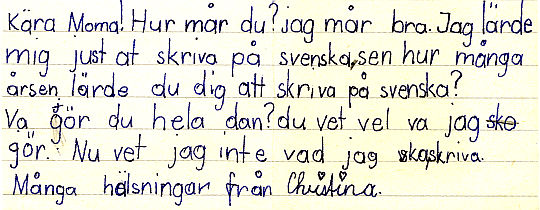 Kära Moma! Hur mår du? jag mår bra. Jag lärde
mig just at skriva på svenska, sen hur många
årsen lärde du dig att skriva på svenska?
Va gör du hela dan? du vet vel va jag sko
gör. Nu vet jag inte vad jag skaskriva.
Många hälsningar från Christina.